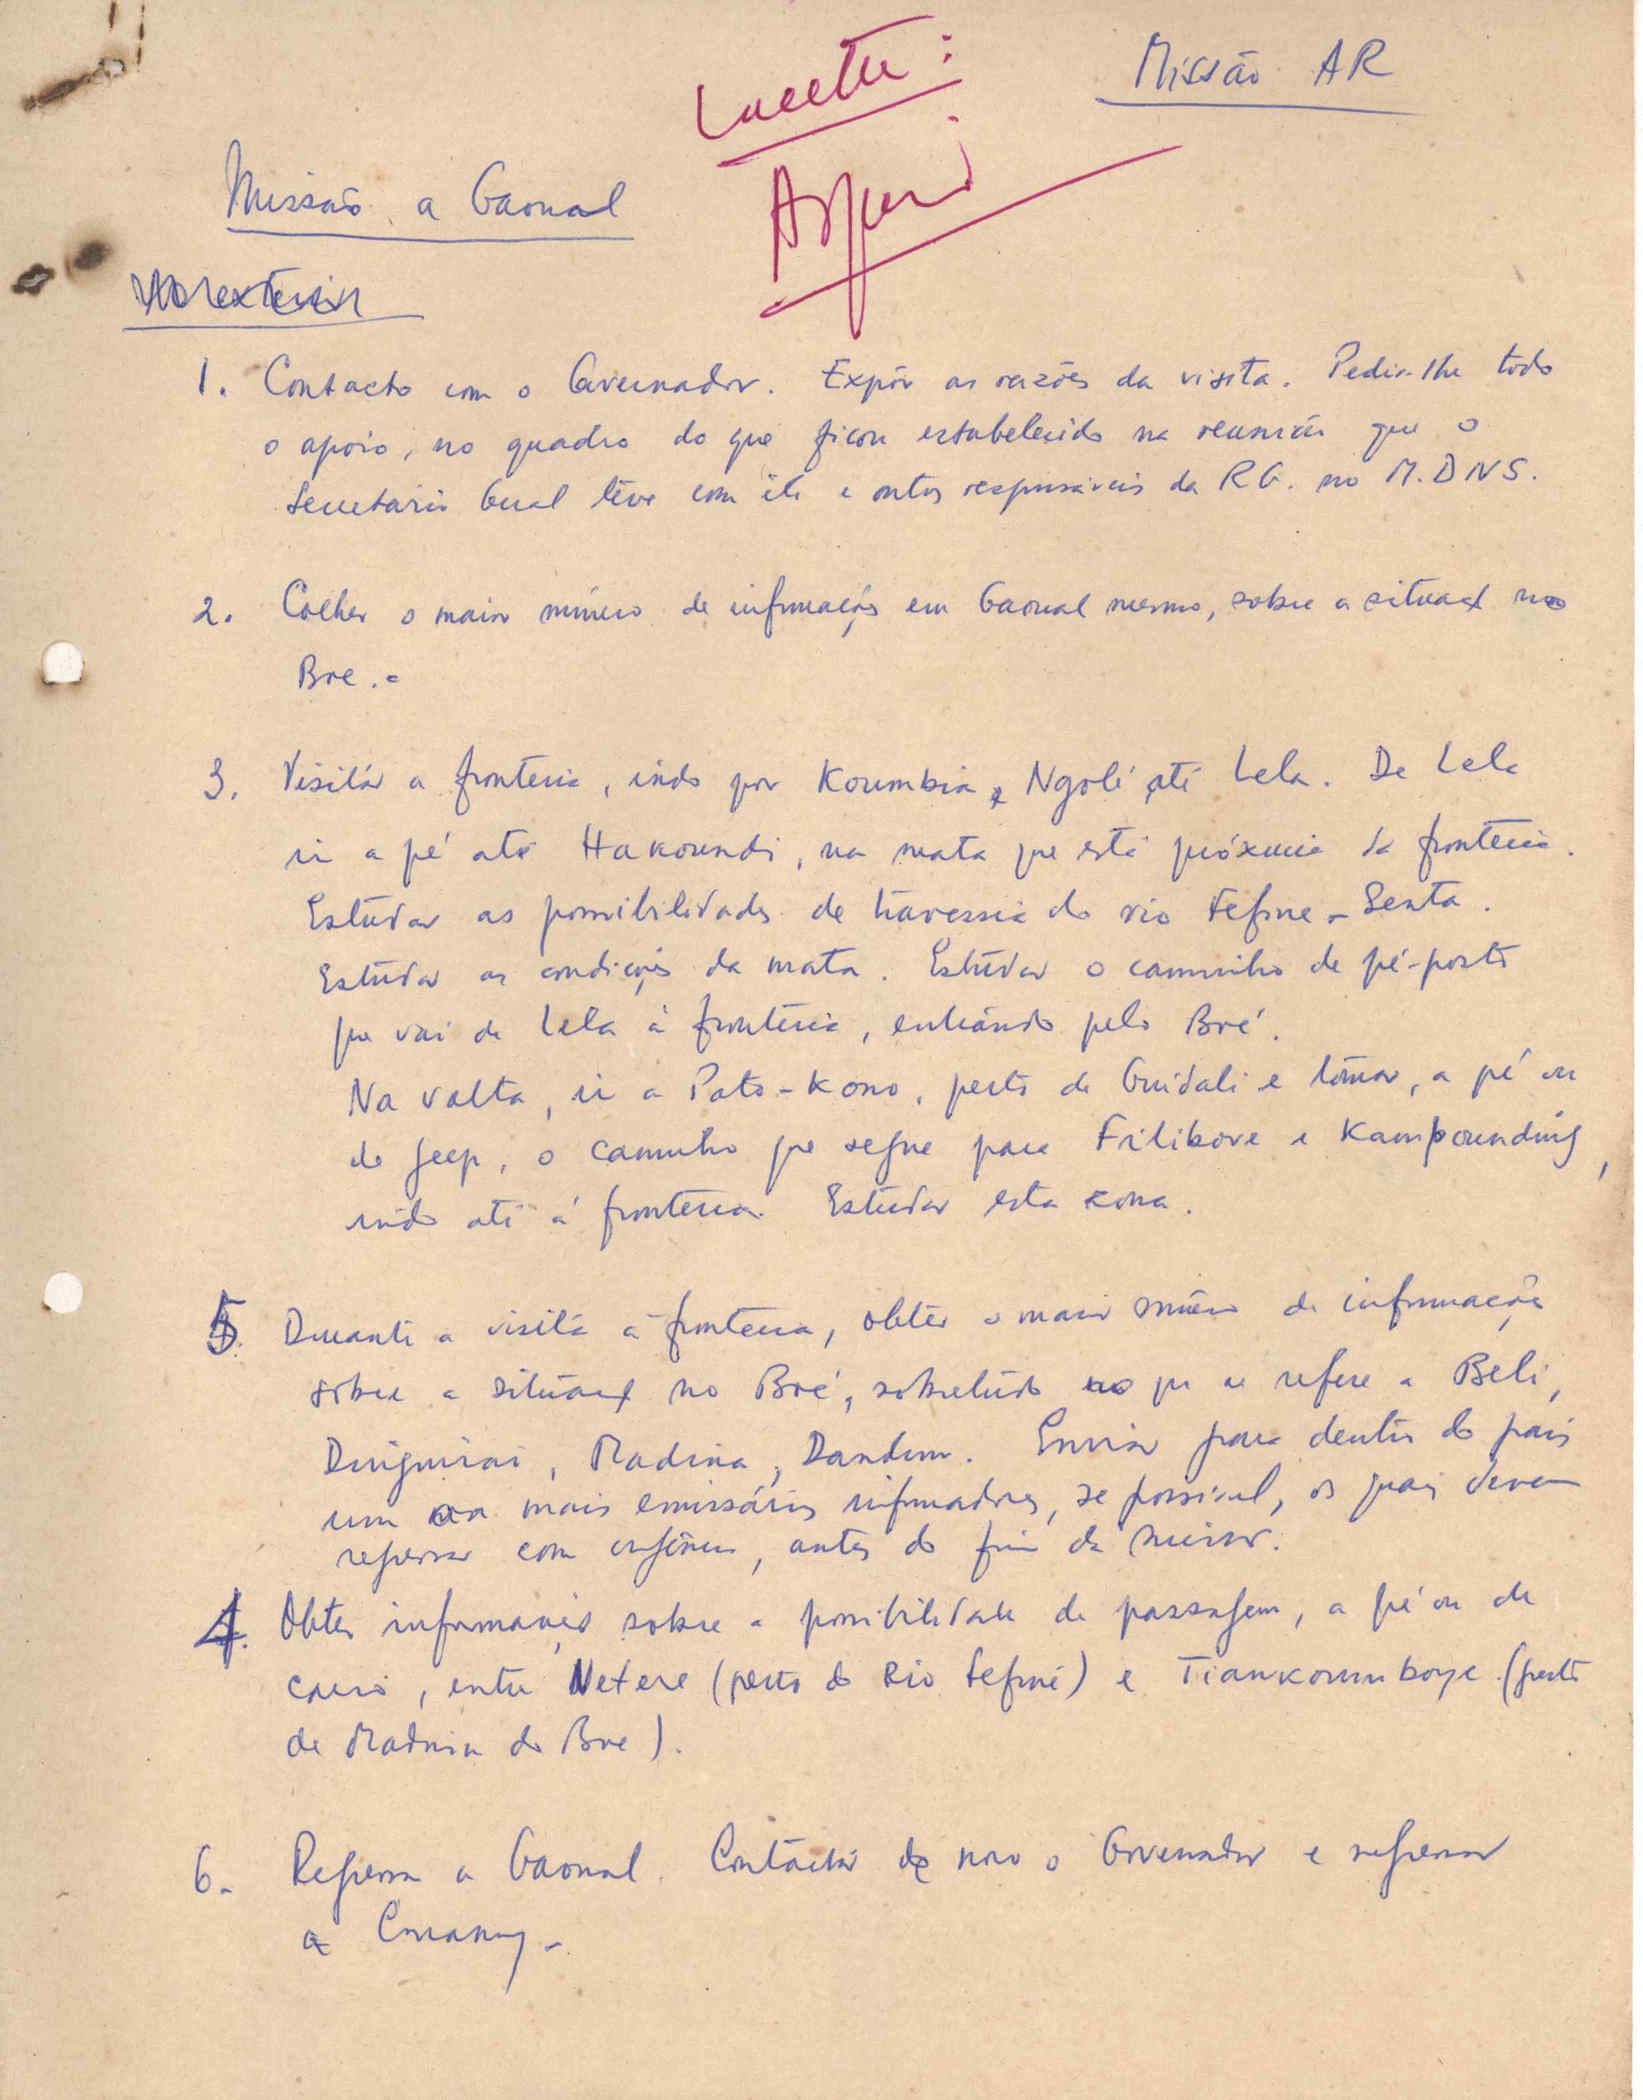 Missão AR
Lucette :
Missão a Gaoual
1. Contacto com o Governador. Expôr as razões da visita. Pedir-lhe todo
o apoio, no quadro do que ficou estabelecido na reunião que o
Secretário Geral têve com êle e outros responsáveis da RG. no M.DNS.
2. Colher o maior número de informações em Gaoual mesmo, sobre a situação no
Boe.-
3. Visitár a fronteira, indo por Koumbia, Ngolé até Lela. De Lela
ir a pé até Hakoundi, na mata que está próxima da fronteira.
Estudar as possibilidades de travessia do rio Fefine - Senta.
Estudar as condições da mata. Estudar o caminho de pé-posto
que vai de Lela à fronteira, entrando pelo Boé.
Na volta, ir a Pato-Kono, perto de Guidali e tomar, a pé ou
de jeep, o caminho que segue para Filibove e Kampounding,
indo até à fronteira. Estudar esta zona.
5. Durante a visita à fronteira, obter o maior número de informações
sobre a situação no Boé, sobretudo no que se refere a Beli,
Duiguirai, Madina, Dandum. Enviar para dentro do país
um ou mais emissários informadores, se possível, os quais devem
regressar com urgência, antes do fim da missão.
4. Obter informações sobre a possibilidade de passagem, a pé ou de
carro, entre Netere (perto do Rio Fefiné) e Tiankoumboye (perto
de Madina do Boe).
6. Regresso a Gaoual. Contactár de novo o Governador e regressar
a Conakry.-